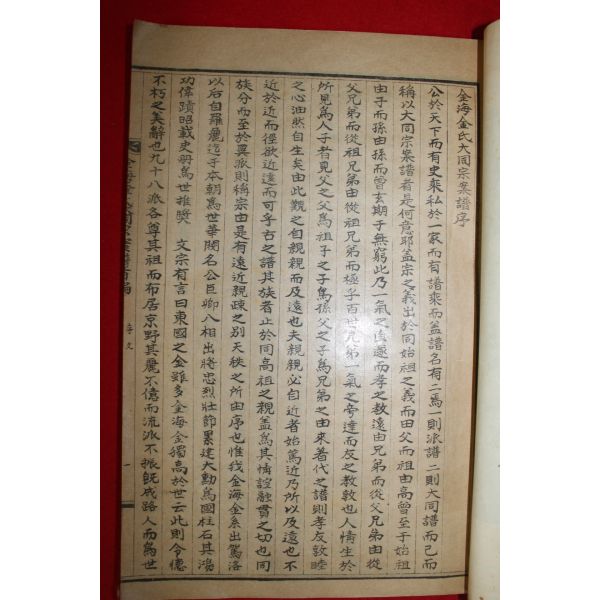 金海金氏大同宗案譜序
公於天下而有史乘私於一家而有譜乘而盖譜名有二焉一則派譜二則大同譜而已而
稱以大同宗案譜者是何意耶盖宗之義出於同始祖之義而由父而祖由高曾至于始祖
由子而孫由孫而曾玄期于無窮此乃一氣之直遂而孝之教遠由兄弟而從父兄弟由從
父兄弟而從祖兄弟由從祖兄弟而極乎百世兄弟一氣之旁達而友之教敦也人情生於
所見爲人子者見父之父爲祖子之子爲孫父之子爲兄弟之由來著代之譜則孝友敦睦
之心油然自生矣由此觀之自親親而及遠也夫親親必自近者始篤近乃所以及遠也不
近於近而徑欲近遠而可乎古之譜其族者止於同高祖之親盖爲其情誼融貫之切也同
族分而至於異派則稱宗由是有遠近親疎之别天秩之所由序也惟我金海金系出駕洛
以后自羅麗迄于本朝爲世華閥名公臣卿八相出將忠烈壯節累建大勳爲國柱石其鴻
功偉蹟昭載史册爲世推奬 文宗有言曰東國之金雖多金海金獨高於世云此則令德
不朽之美辭也九十八派各尊其祖而布居京野其麗不億而流派不振旣成路人而爲世
序文
一